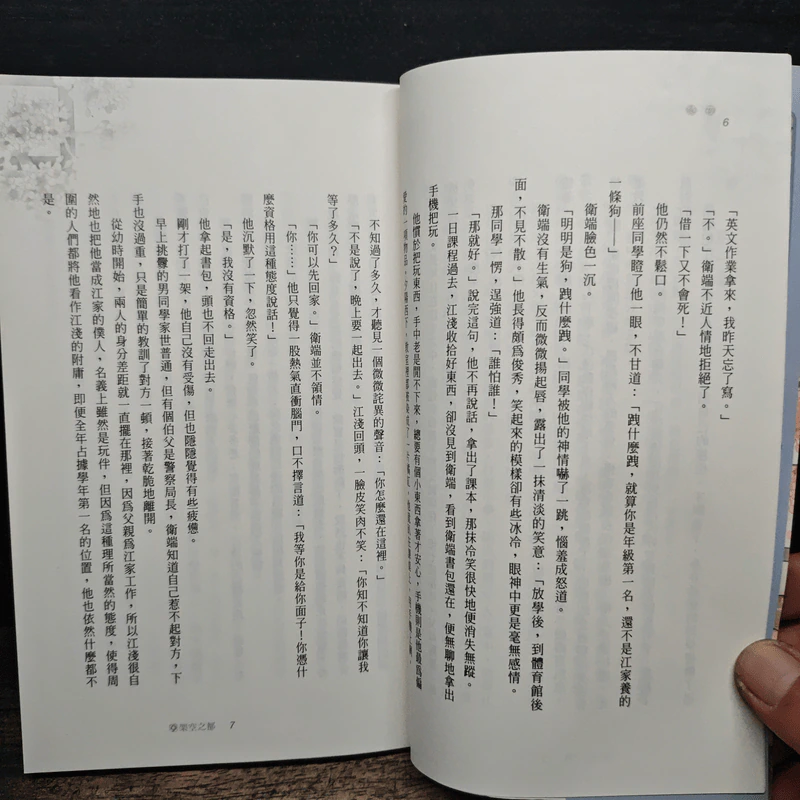 6
「英文作業拿來，我昨天忘了寫。」
「不。」衛端不近人情地拒絕了。
「借一下又不會死！」
他仍然不鬆口。
前座同學瞪了他一眼，不甘道：「跩什麼跩，就算你是年級第一名，還不是江家養的
一條狗——」
衛端臉色一沉。
「明明是狗，跩什麼跩。」同學被他的神情嚇了一跳，惱羞成怒道。
衛端沒有生氣，反而微微揚起唇，露出了一抹清淡的笑意：「放學後，到體育館後
面，不見不散。」他長得頗為俊秀，笑起來的模樣卻有些冰冷，眼神中更是毫無感情。
那同學一愣，逞強道：「誰怕誰！」
「那就好。」說完這句，他不再說話，拿出了課本，那抹冷笑很快地便消失無蹤。
一日課程過去，江淺收拾好東西，卻沒見到衛端，看到衛端書包還在，便無聊地拿出
手機把玩。
他慣於把玩東西，手中老是閒不下來，總要有個小東西拿著才安心，手機則是他最為偏
愛的一項物品。
不知過了多久，才聽見一個微微詫異的聲音：「你怎麼還在這裡。」
「不是說了，晚上要一起出去。」江淺回頭，一臉皮笑肉不笑：「你知不知道你讓我
等了多久？」
「你可以先回家。」衛端並不領情。
「你……」他只覺得一股熱氣直衝腦門，口不擇言道：「我等你是給你面子！你憑什
麼資格用這種態度說話！」
他沉默了一下，忽然笑了。
「是，我沒有資格。」
他拿起書包，頭也不回走出去。
剛才打了一架，他自己沒有受傷，但也隱隱覺得有些疲憊。
早上挑釁的男同學家世普通，但有個伯父是警察局長，衛端知道自己惹不起對方，下
手也沒過重，只是簡單的教訓了對方一頓，接著乾脆地離開。
從幼時開始，兩人的身分差距就一直擺在那裡，因為父親為江家工作，所以江淺很自
然地也把他當成江家的僕人，名義上雖然是玩伴，但因為這種理所當然的態度，使得周
圍的人們都將他看作江淺的附庸，即便全年占據學年第一名的位置，他也依然什麼都不
是。
架空之都 7